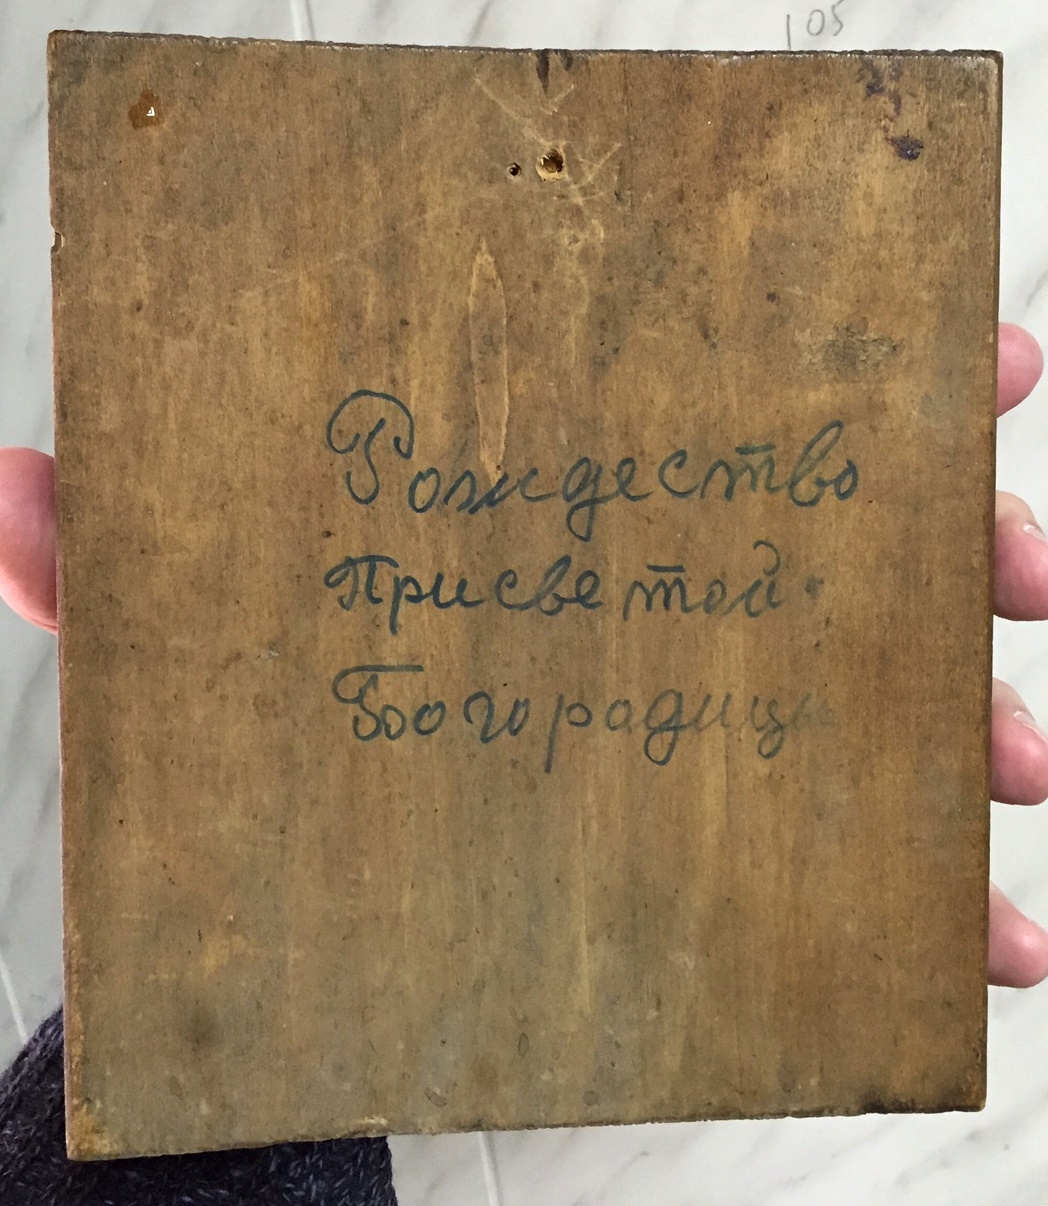 105
Рождество
Присветой.
Богородицы